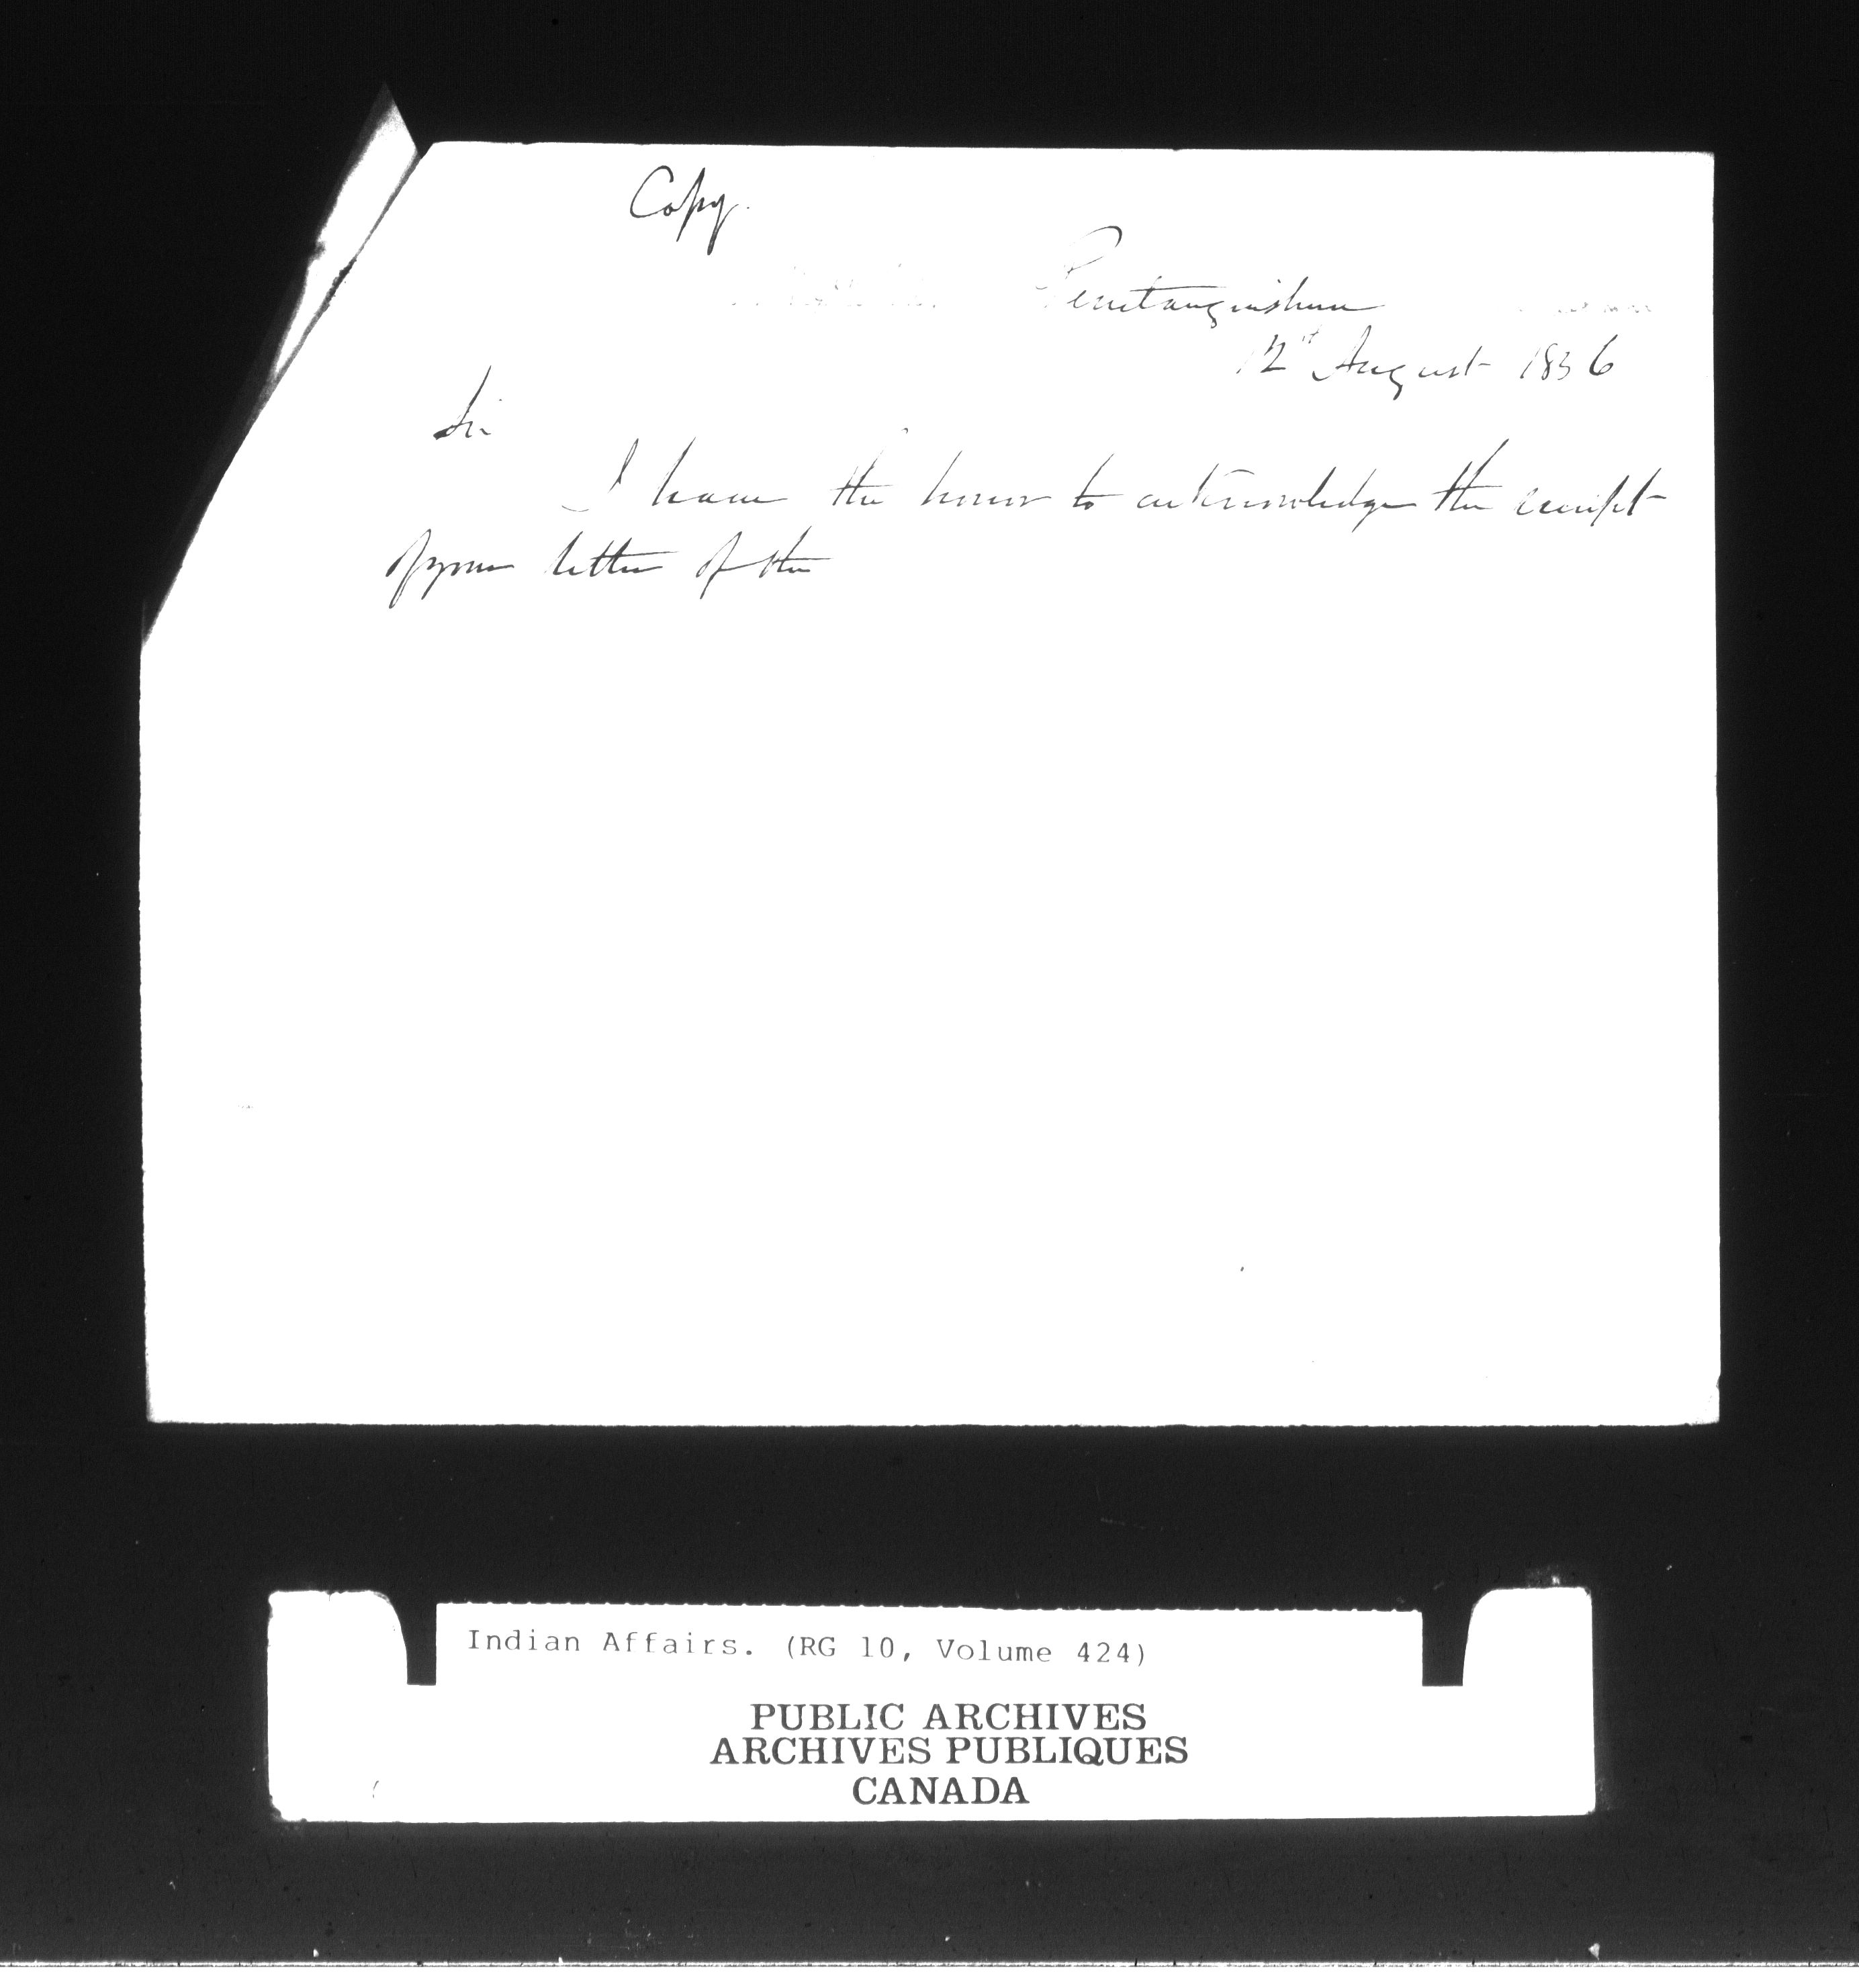 Copy.
Penetanguishene
12th August 1836
Sir
I have the honor to acknowledge the receipt
of your letter of the
Indian Affairs. (RG 10, Volume 424)
PUBLIC ARCHIVES
ARCHIVES PUBLIQUES
CANADA